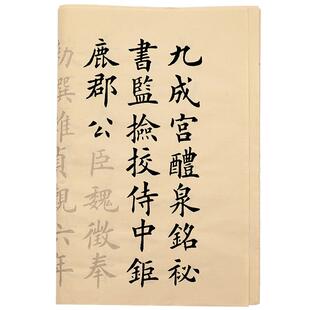 九成宮醴泉銘祕
書監撿挍侍中鉅
鹿郡公臣魏徵奉
勑撰維貞觀六年